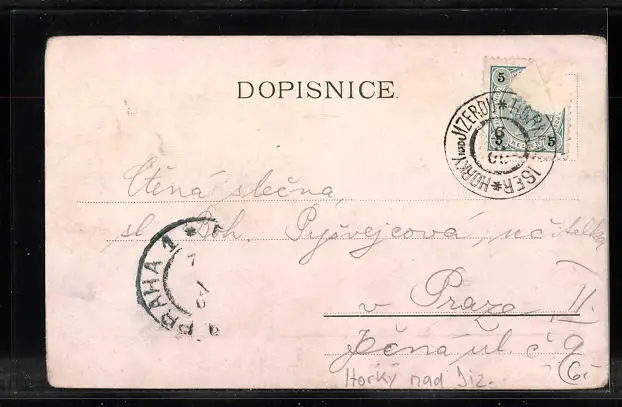 DOPISNICE.
5
5
HORKY NAD JIZEROU * HORK ISER *
6
5
00
Ctěná slečna,
sl. Boh. Pyšvejcová, učitelka
PRAHA 1 *
v Praze II.
Ječná ul. č 9
Horky nad Jiz.